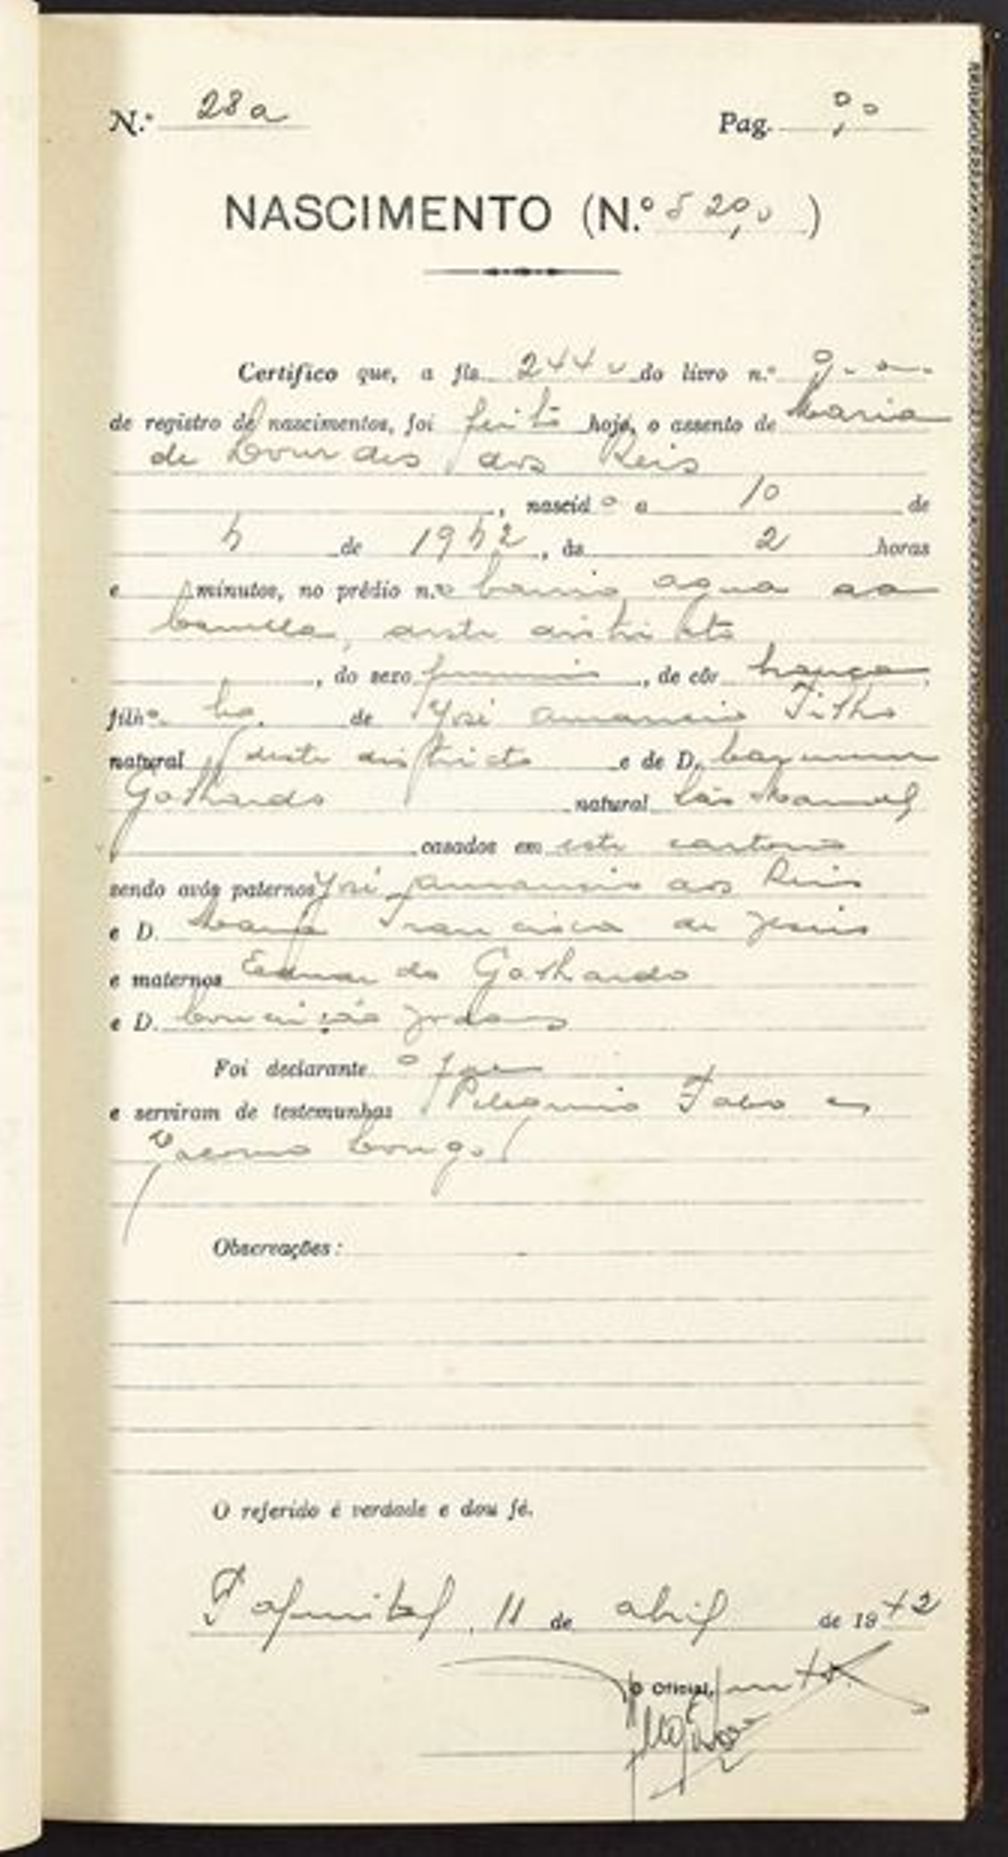 N.º 28a Pag.
NASCIMENTO (N.º 5290)
Certifico que, a fls. 244 v do livro n.º 9
de registro de nascimentos, foi feito hoje, o assento de Maria
de Lourdes dos Reis
, nascido a 10 de
4 de 1942, ás 2 horas
e minutos, no prédio n.º bairro agua da
deste districto
, do sexo feminino, de côr branca,
filho de José Amancio Filho
natural deste districto e de D. Carmem
Galhardo natural São Manoel
casados em este cartorio
sendo avós paternos José Amancio dos Reis
e D. Maria Francisca de Jesus
e maternos Eduardo Galhardo
e D. Conceição
Foi declarante o pae
e serviram de testemunhas e
Observações:
O referido é verdade e dou fé.
11 de abril de 1942
O Oficial,